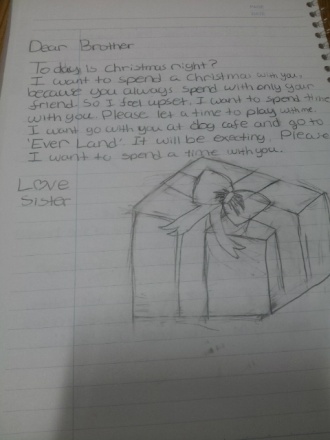 Dear Brother
Today is Christmas right?
I want to spend a Christmas with you,
because you always spend with only your
friend. So I feel upset. I want to spend time
with you. Please let a time to play with me.
I want go with you at dog cafe and go to
'Ever Land'. It will be exciting. Please
I want to spend a time with you.
Love
Sister